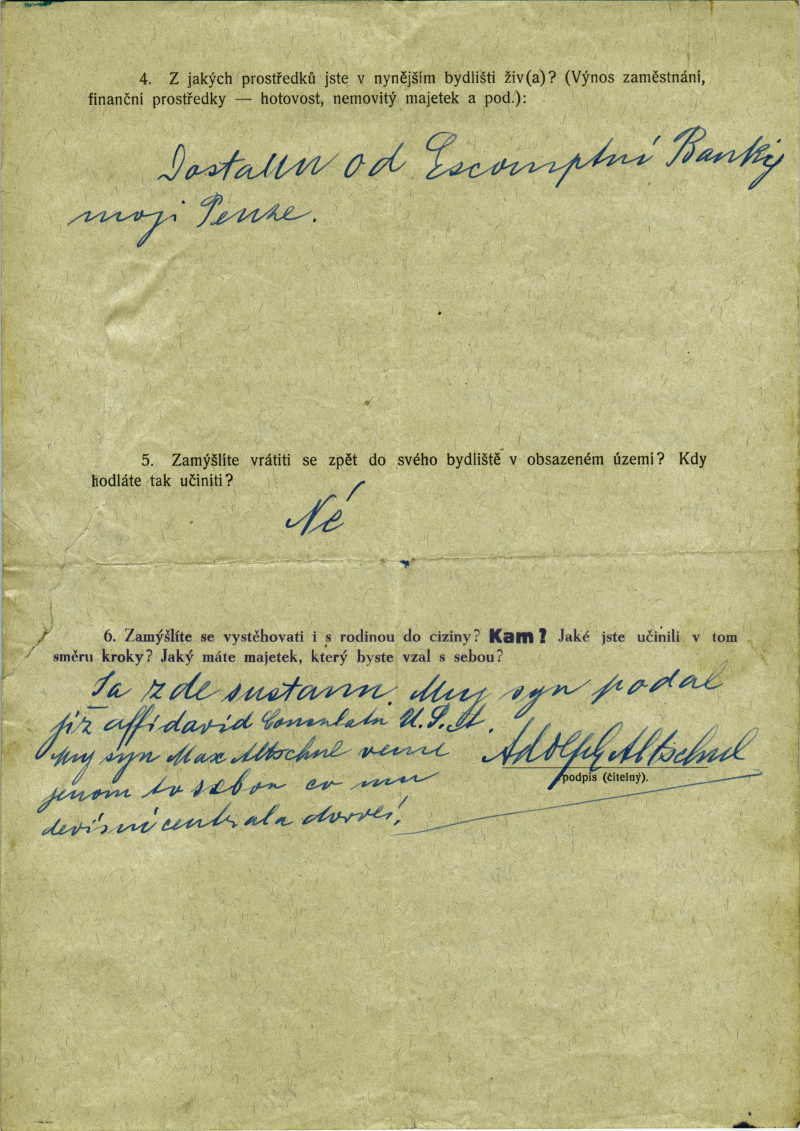 4. Z jakých prostředků jste v nynějším bydlišti živ(a)? (Výnos zaměstnání,
finanční prostředky — hotovost, nemovitý majetek a pod.):
Dostanu od Escomptní Banky
moji Penze.
5. Zamýšlíte vrátiti se zpět do svého bydliště v obsazeném území? Kdy
hodláte tak učiniti?
Né
6. Zamýšlíte se vystěhovati i s rodinou do ciziny? Kam? Jaké jste učinili v tom
směru kroky? Jaký máte majetek, který byste vzal s sebou?
Ja zde sustanu. Muj syn podal
již affidavid Consulatu U.S.A.
Muj syn Max Altschul veme
Adolf Altschul
podpis (čitelný).
jenom to sebou co mu
devísní centrala dovolí!